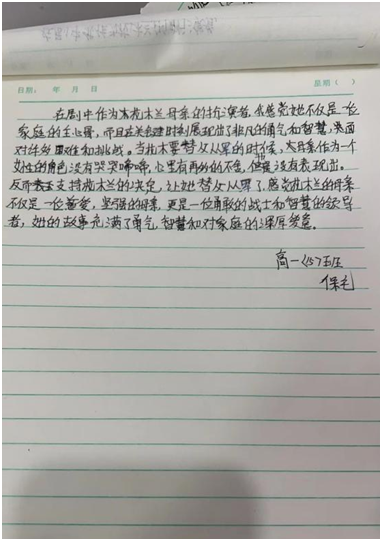 日期： 年 月 日 星期（ ）
在剧中作为花木兰母亲的扮演者，我感觉她不仅是一位
家庭的主心骨，而且在关键时刻展现出了非凡的勇气和智慧，面
对许多困难和挑战。当花木要替父从军的时候，木母亲作为一个
女性的角色没有哭哭啼啼，心里有再多的不舍，但也没有表现出。
反而支持花木兰的决定，让她替父从军了，感觉花木兰的母亲
不仅是一位慈爱，坚强的母亲，更是一位勇敢的战士和智慧的领导
者，她的故事充满了勇气，智慧和对家庭的深厚爱意。
高一〈15〉班
保毛